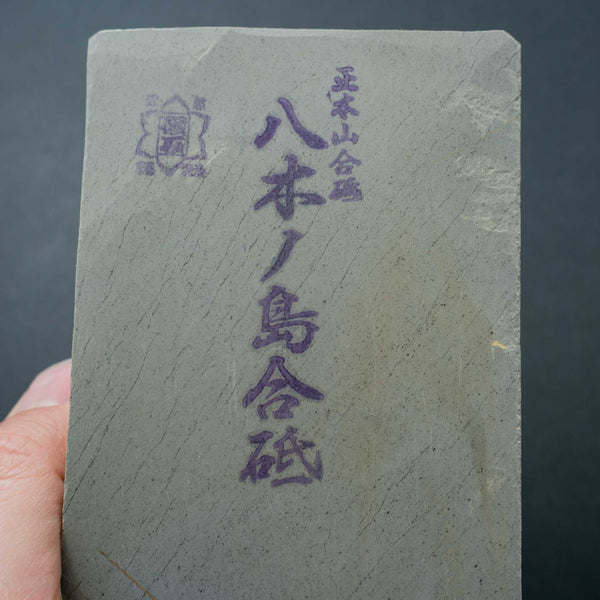 正本山合砥
八木ノ島合砥